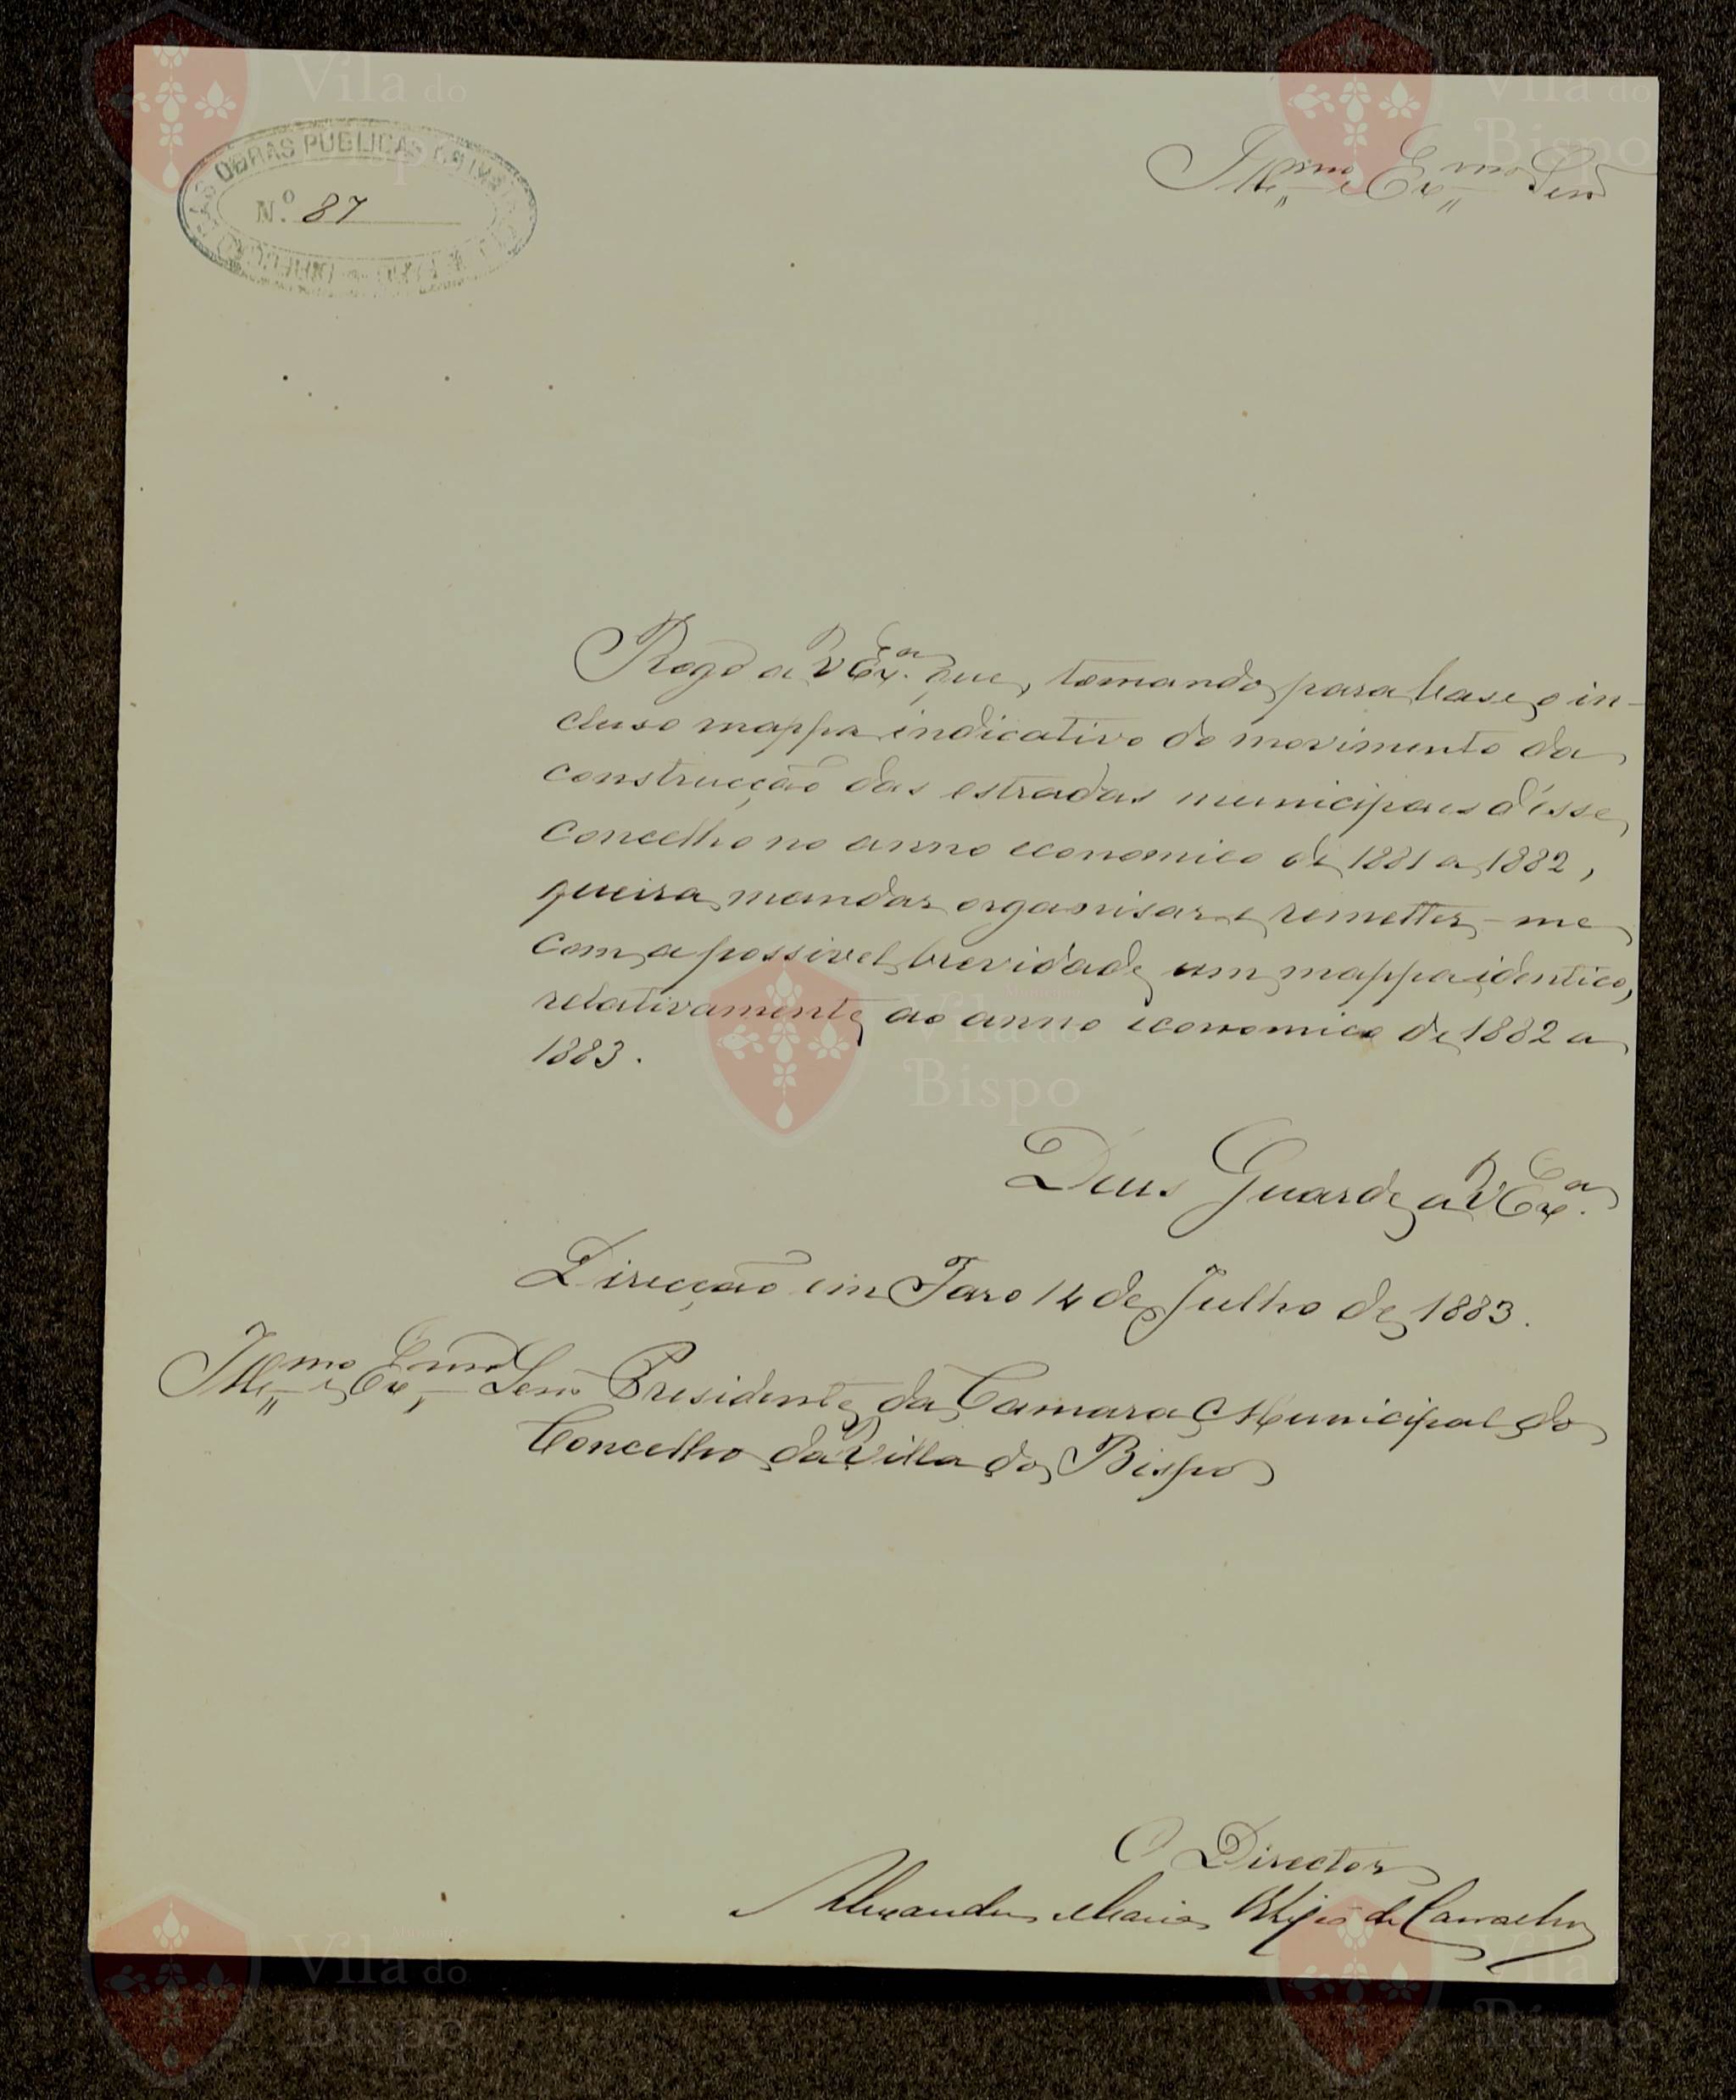 OBRAS PUBLICAS
N.º 87
Ill.mo e Ex.mo Senr
Rogo a V Ex.ª que, tomando para base o in-
cluso mappa indicativo do movimento da
construcção das estradas municipaes d'esse
concelho no anno economico de 1881 a 1882,
queira mandar organisar e remetter-me
com a possivel brevidade um mappa identico,
relativamente ao anno economico de 1882 a
1883.
Deus Guarde a V Ex.ª
Direcção em Faro 14 de Julho de 1883.
Ill.mo e Ex.mo Senr Presidente da Camara Municipal do
Concelho da Villa do Bispo
O Director
Alexandre Maria de Carvalho
Vila do
Bispo